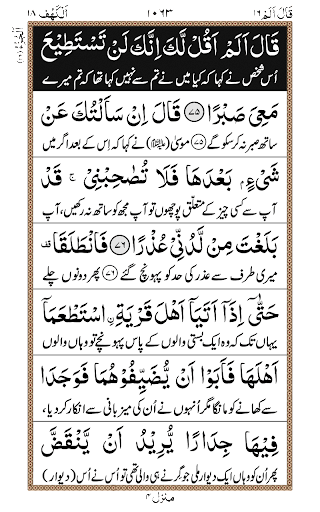 قَالَ اَلَمۡ ١٦ ١٠٦٣ اَلۡكَهۡف ١٨
قَالَ اَلَمۡ اَقُلۡ لَّكَ اِنَّكَ لَنۡ تَسۡتَطِيۡعَ
اُس شخص نے کہا کہ کیا میں نے تم سے نہیں کہا تھا کہ تم میرے
مَعِىَ صَبۡرًا ﴿٧٥﴾ قَالَ اِنۡ سَاَلۡتُكَ عَنۡ
ساتھ صبر نہ کر سکو گے ﴿٧٥﴾ موسیٰ (علیہ السلام) نے کہا کہ اِس کے بعد اگر میں
شَىۡءٍۢ بَعۡدَهَا فَلَا تُصٰحِبۡنِىۡ‌ ۚ قَدۡ
آپ سے کسی چیز کے متعلق پوچھوں تو آپ مجھ کو ساتھ نہ رکھیں، آپ
بَلَغۡتَ مِنۡ لَّدُنِّىۡ عُذۡرًا ﴿٧٦﴾ فَانْطَلَقَا
میری طرف سے عذر کی حد کو پہونچ گئے ﴿٧٦﴾ پھر دونوں چلے
حَتّٰٓى اِذَاۤ اَتَيَاۤ اَهۡلَ قَرۡيَةِ ۨاسۡتَطۡعَمَاۤ
یہاں تک کہ وہ ایک بستی والوں کے پاس پہونچے تو وہاں والوں
اَهۡلَهَا فَاَبَوۡا اَنۡ يُّضَيِّفُوۡهُمَا فَوَجَدَا
سے کھانے کو مانگا مگر اُنہوں نے اُن کی میزبانی سے انکار کر دیا،
فِيۡهَا جِدَارًا يُّرِيۡدُ اَنۡ يَّنۡقَضَّ
پھر اُن کو وہاں ایک دیوار ملی جو گرنے ہی والی تھی تو اُس نے اُس (دیوار)
منزل ٤